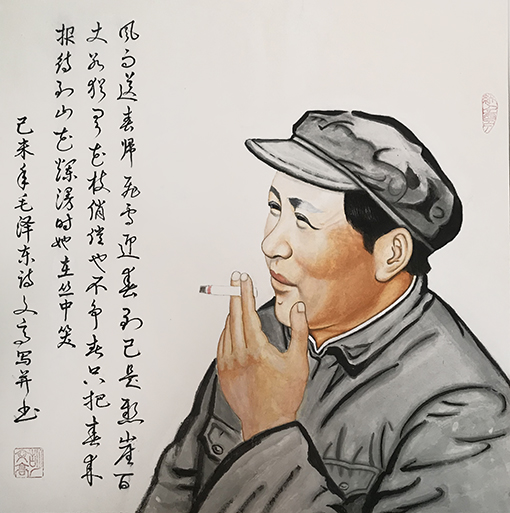 风雨送春归飞雪迎春到已是悬崖百
丈冰犹有花枝俏俏也不争春只把春来
报待到山花烂漫时她在丛中笑
己未年毛泽东诗文写并书